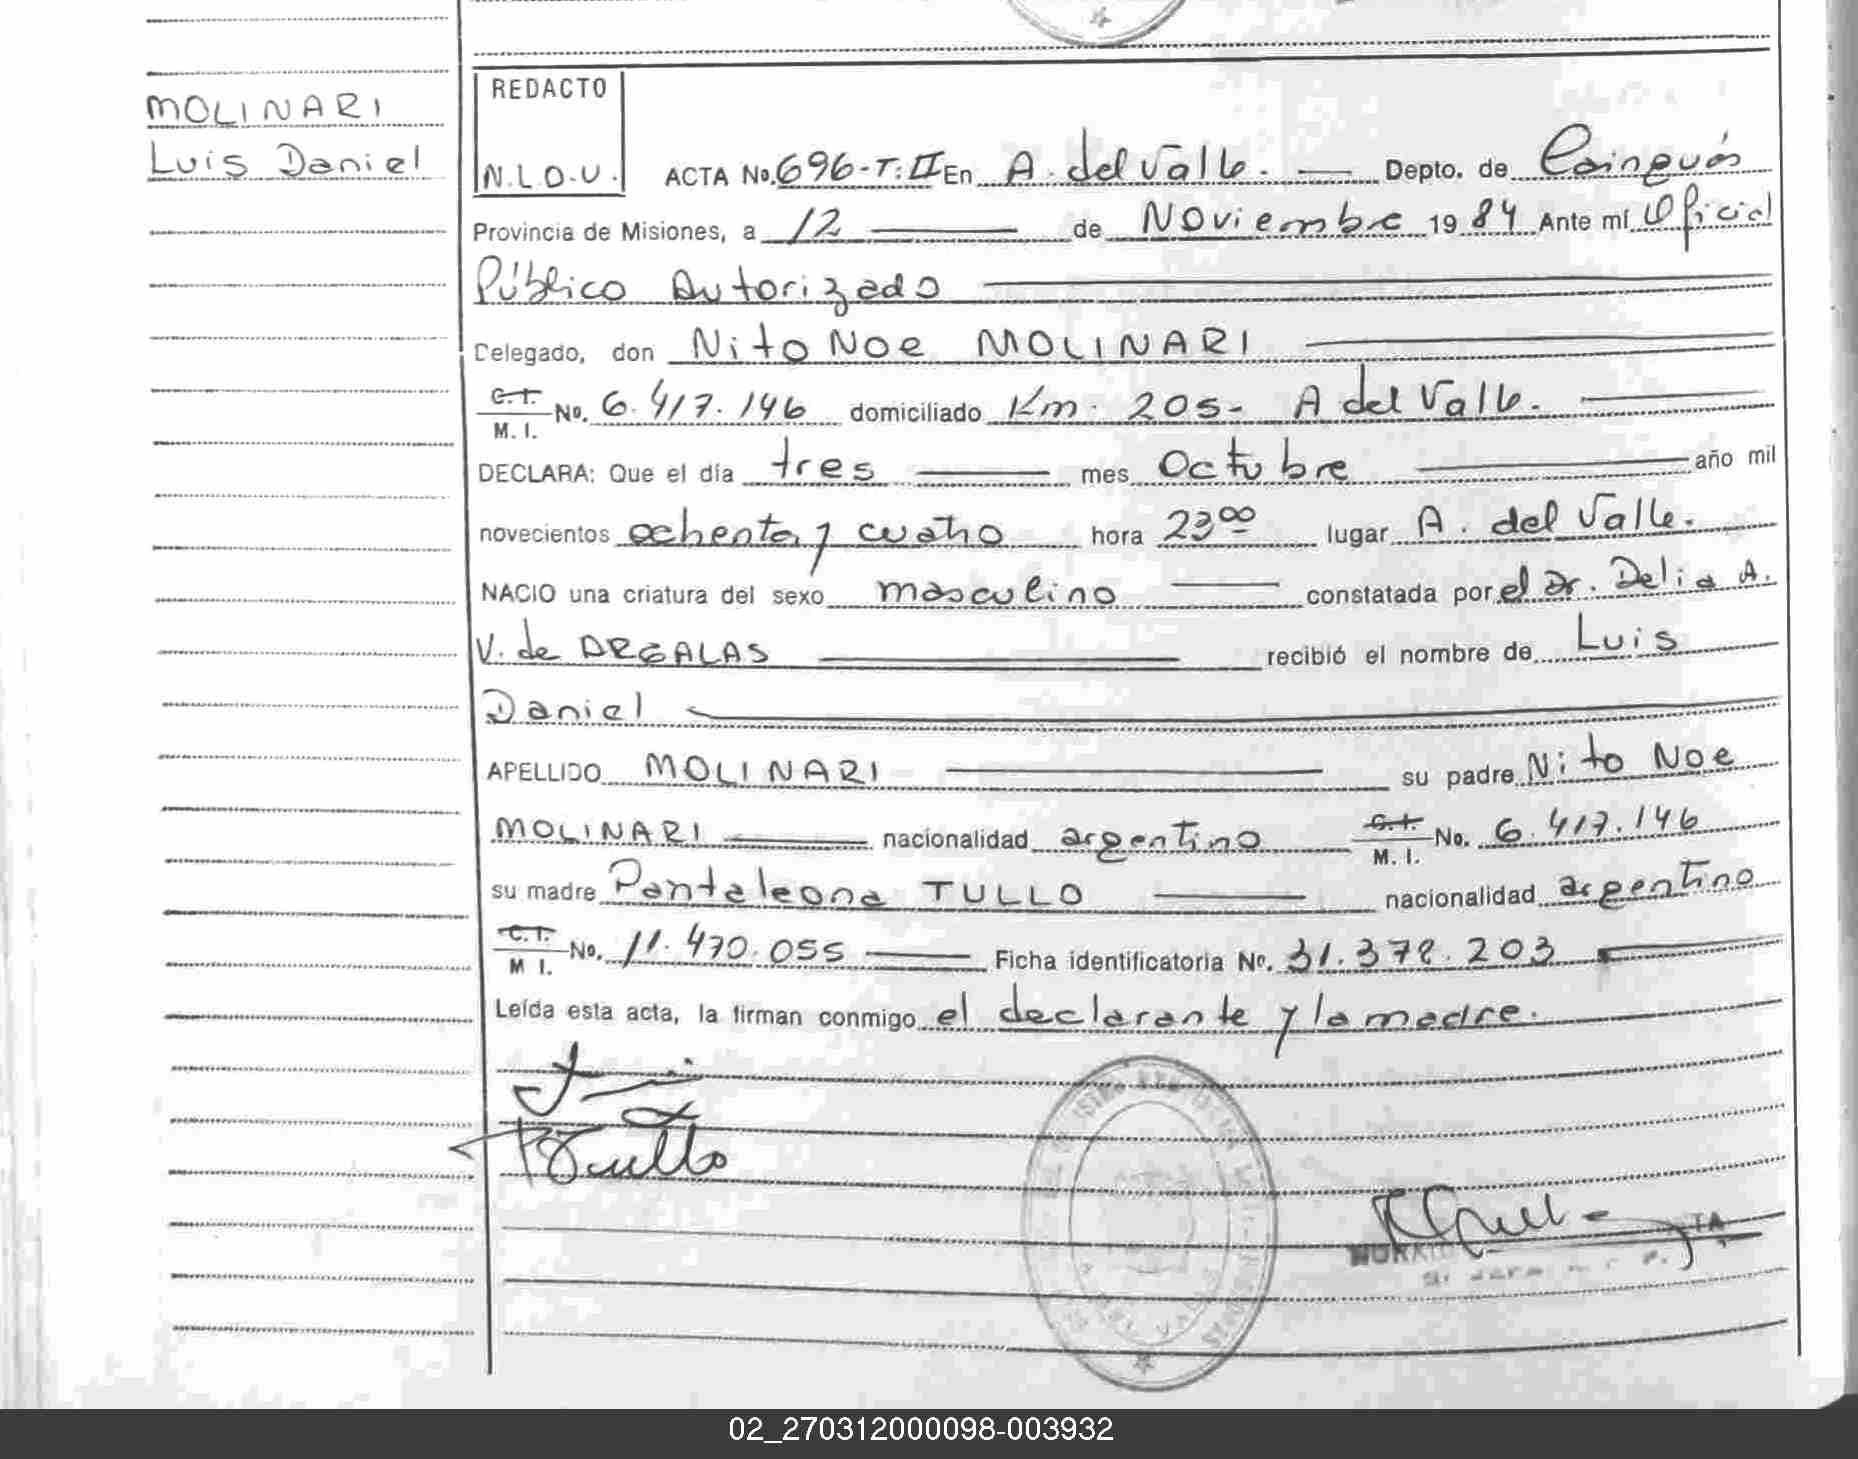 MOLINARI
Luis Daniel
REDACTO
N.L.O.V.
ACTA No. 696-T:II En A. del Valle. Depto. de Cainguás
Provincia de Misiones, a 12 de Noviembre 1984 Ante mí Oficial
Público Autorizado
Delegado, don Nito Noe MOLINARI
C.I. M.I. No. 6.417.146 domiciliado Km. 205- A del Valle.
DECLARA: Que el día tres mes Octubre año mil
novecientos ochenta y cuatro hora 23⁰⁰ lugar A. del Valle.
NACIO una criatura del sexo masculino constatada por el Dr. Delia A.
V. de ARGALAS recibió el nombre de Luis
Daniel
APELLIDO MOLINARI su padre Nito Noe
MOLINARI nacionalidad argentino C.I. M.I. No. 6.417.146
su madre Pantaleona TULLO nacionalidad argentino
C.I. M I. No. 11.470.055 Ficha identificatoria Nº. 31.378.203
Leída esta acta, la firman conmigo el declarante y la madre.
Tullo
02_270312000098-003932